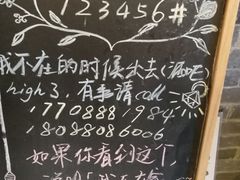 123456#
我不在的时候出去(酒吧
high了,有事请call
17708881984
18088086006
如果你看到这个,